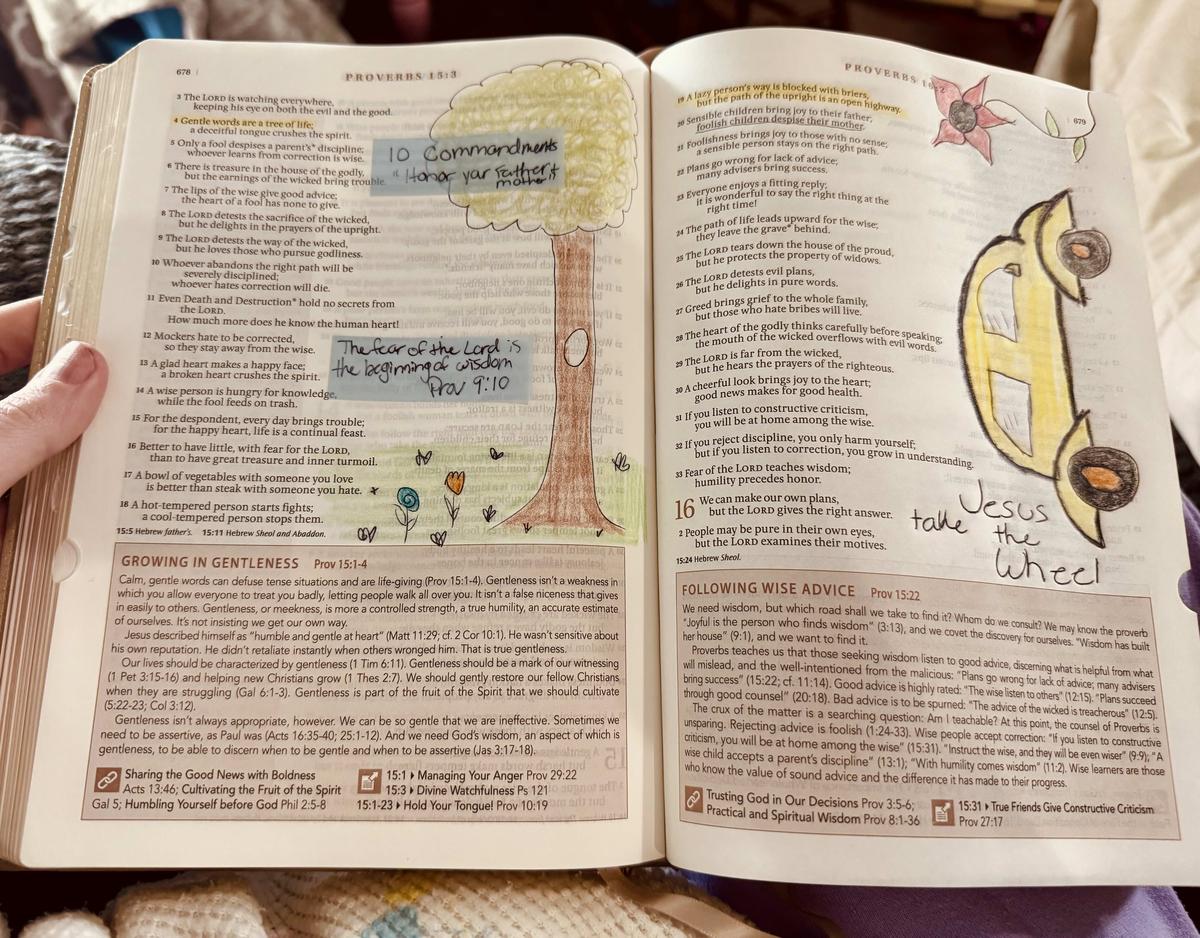 678
PROVERBS 15:3
3 The LORD is watching everywhere,
keeping his eye on both the evil and the good.
4 Gentle words are a tree of life;
a deceitful tongue crushes the spirit.
5 Only a fool despises a parent's* discipline;
whoever learns from correction is wise.
6 There is treasure in the house of the godly,
but the earnings of the wicked bring trouble.
7 The lips of the wise give good advice;
the heart of a fool has none to give.
8 The LORD detests the sacrifice of the wicked,
but he delights in the prayers of the upright.
9 The LORD detests the way of the wicked,
but he loves those who pursue godliness.
10 Whoever abandons the right path will be
severely disciplined;
whoever hates correction will die.
11 Even Death and Destruction* hold no secrets from
the LORD.
How much more does he know the human heart!
12 Mockers hate to be corrected,
so they stay away from the wise.
13 A glad heart makes a happy face;
a broken heart crushes the spirit.
14 A wise person is hungry for knowledge,
while the fool feeds on trash.
15 For the despondent, every day brings trouble;
for the happy heart, life is a continual feast.
16 Better to have little, with fear for the LORD,
than to have great treasure and inner turmoil.
17 A bowl of vegetables with someone you love
is better than steak with someone you hate.
18 A hot-tempered person starts fights;
a cool-tempered person stops them.
15:5 Hebrew father's. 15:11 Hebrew Sheol and Abaddon.
10 Commandments
"Honor your Father &
mother"
The fear of the Lord is
the beginning of wisdom
Prov 9:10
GROWING IN GENTLENESS Prov 15:1-4
Calm, gentle words can defuse tense situations and are life-giving (Prov 15:1-4). Gentleness isn't a weakness in
which you allow everyone to treat you badly, letting people walk all over you. It isn't a false niceness that gives
in easily to others. Gentleness, or meekness, is more a controlled strength, a true humility, an accurate estimate
of ourselves. It's not insisting we get our own way.
Jesus described himself as "humble and gentle at heart" (Matt 11:29; cf. 2 Cor 10:1). He wasn't sensitive about
his own reputation. He didn't retaliate instantly when others wronged him. That is true gentleness.
Our lives should be characterized by gentleness (1 Tim 6:11). Gentleness should be a mark of our witnessing
(1 Pet 3:15-16) and helping new Christians grow (1 Thes 2:7). We should gently restore our fellow Christians
when they are struggling (Gal 6:1-3). Gentleness is part of the fruit of the Spirit that we should cultivate
(5:22-23; Col 3:12).
Gentleness isn't always appropriate, however. We can be so gentle that we are ineffective. Sometimes we
need to be assertive, as Paul was (Acts 16:35-40; 25:1-12). And we need God's wisdom, an aspect of which is
gentleness, to be able to discern when to be gentle and when to be assertive (Jas 3:17-18).
Sharing the Good News with Boldness
Acts 13:46; Cultivating the Fruit of the Spirit
Gal 5; Humbling Yourself before God Phil 2:5-8
15:1 ▸ Managing Your Anger Prov 29:22
15:3 ▸ Divine Watchfulness Ps 121
15:1-23 ▸ Hold Your Tongue! Prov 10:19
PROVERBS 16:2
679
19 A lazy person's way is blocked with briers,
but the path of the upright is an open highway.
20 Sensible children bring joy to their father;
foolish children despise their mother.
21 Foolishness brings joy to those with no sense;
a sensible person stays on the right path.
22 Plans go wrong for lack of advice;
many advisers bring success.
23 Everyone enjoys a fitting reply;
it is wonderful to say the right thing at the
right time!
24 The path of life leads upward for the wise;
they leave the grave* behind.
25 The LORD tears down the house of the proud,
but he protects the property of widows.
26 The LORD detests evil plans,
but he delights in pure words.
27 Greed brings grief to the whole family,
but those who hate bribes will live.
28 The heart of the godly thinks carefully before speaking;
the mouth of the wicked overflows with evil words.
29 The LORD is far from the wicked,
but he hears the prayers of the righteous.
30 A cheerful look brings joy to the heart;
good news makes for good health.
31 If you listen to constructive criticism,
you will be at home among the wise.
32 If you reject discipline, you only harm yourself;
but if you listen to correction, you grow in understanding.
33 Fear of the LORD teaches wisdom;
humility precedes honor.
16 We can make our own plans,
but the LORD gives the right answer.
2 People may be pure in their own eyes,
but the LORD examines their motives.
15:24 Hebrew Sheol.
Jesus
take the
Wheel
FOLLOWING WISE ADVICE Prov 15:22
We need wisdom, but which road shall we take to find it? Whom do we consult? We may know the proverb
"Joyful is the person who finds wisdom" (3:13), and we covet the discovery for ourselves. "Wisdom has built
her house" (9:1), and we want to find it.
Proverbs teaches us that those seeking wisdom listen to good advice, discerning what is helpful from what
will mislead, and the well-intentioned from the malicious: "Plans go wrong for lack of advice; many advisers
bring success" (15:22; cf. 11:14). Good advice is highly rated: "The wise listen to others" (12:15). "Plans succeed
through good counsel" (20:18). Bad advice is to be spurned: "The advice of the wicked is treacherous" (12:5).
The crux of the matter is a searching question: Am I teachable? At this point, the counsel of Proverbs is
unsparing. Rejecting advice is foolish (1:24-33). Wise people accept correction: "If you listen to constructive
criticism, you will be at home among the wise" (15:31). "Instruct the wise, and they will be even wiser" (9:9); "A
wise child accepts a parent's discipline" (13:1); "With humility comes wisdom" (11:2). Wise learners are those
who know the value of sound advice and the difference it has made to their progress.
Trusting God in Our Decisions Prov 3:5-6;
Practical and Spiritual Wisdom Prov 8:1-36
15:31 ▸ True Friends Give Constructive Criticism
Prov 27:17